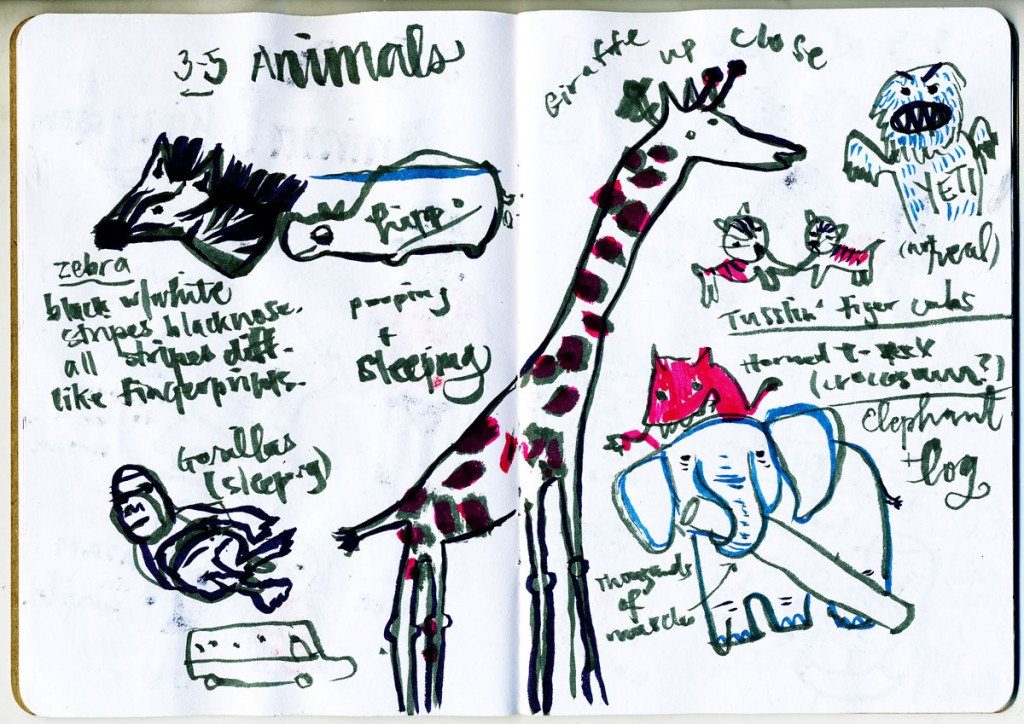 3-5 Animals
zebra
black w/white
stripes black nose.
all stripes diff.
like fingerprints.
pooping
+
sleeping
Gorillas
(sleeping)
Giraffe up close
YETI
(not real)
Tusslin' tiger cubs
Horned t-
Elephant
+ log
Thousands
of
muscles